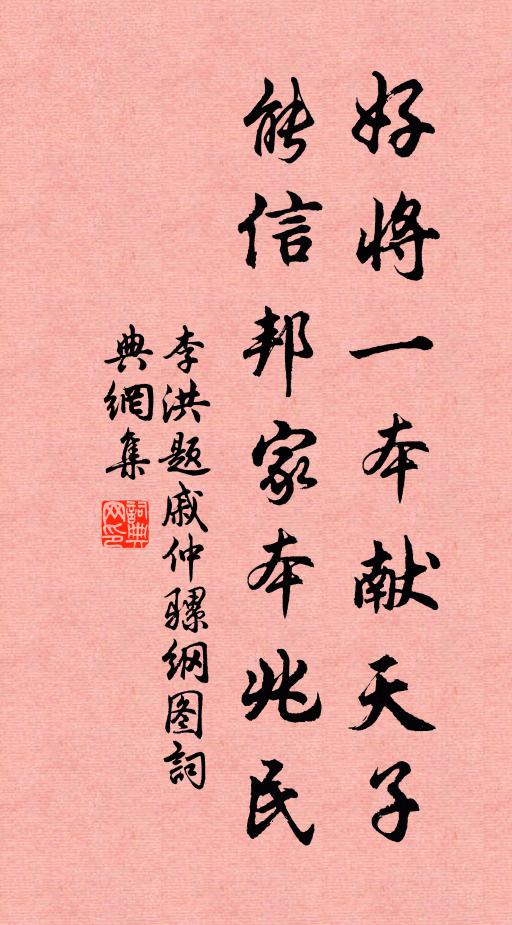 好将一本献天子
能信邦家本兆民
李洪题戚仲骡纲图詞
典網集
詞典网印